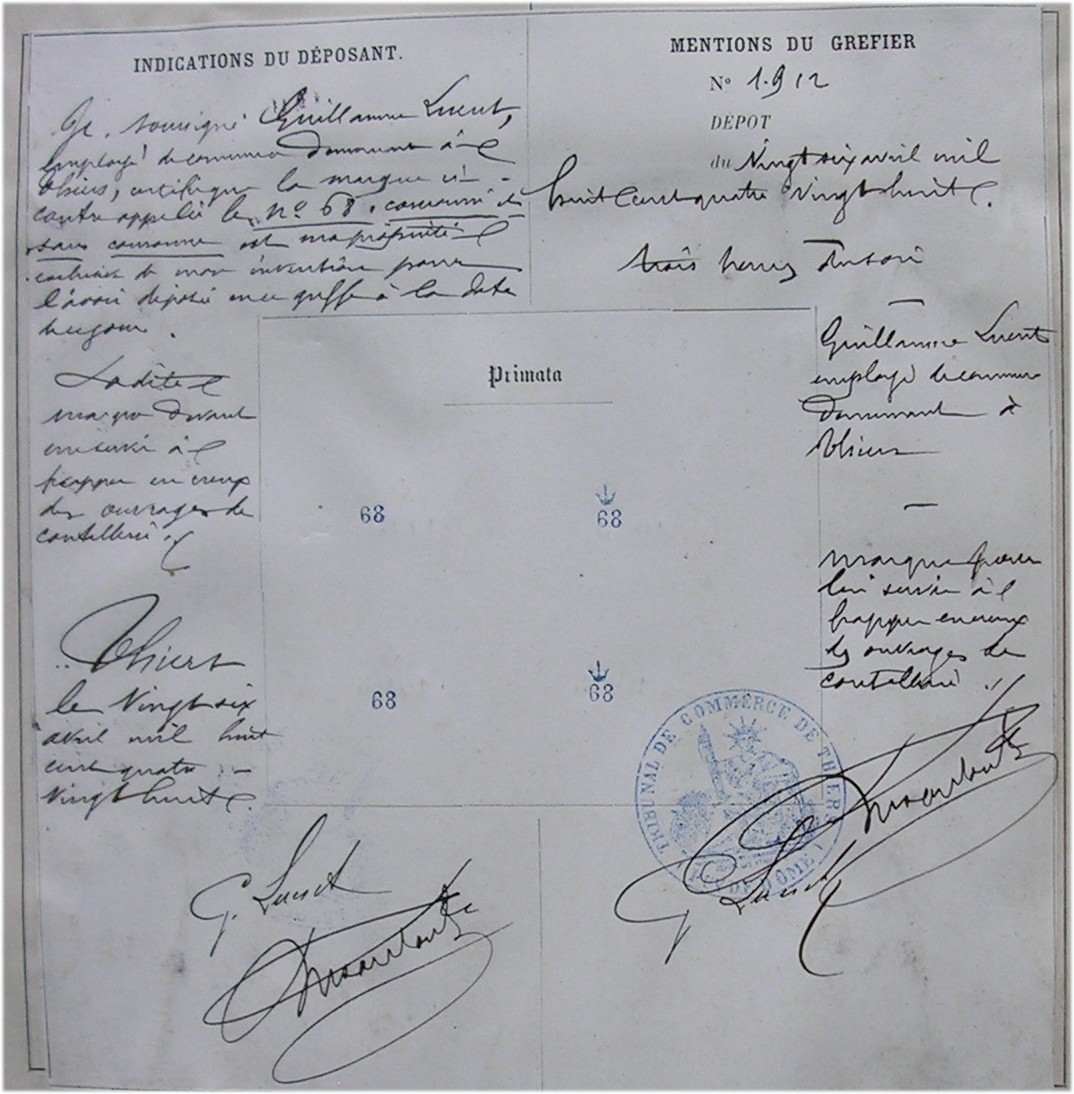 INDICATIONS DU DÉPOSANT.
Je soussigné Guillaume Lucut,
employé de commerce demeurant à
Thiers, certifie que la marque ci-
contre appelée le nº 68, couronné et
sans couronne est ma propriété
exclusive de mon invention pour
l'avoir déposée en ce greffe à la date
de ce jour.
Ladite
marque devant
me servir à
frapper en creux
des ouvrages de
coutellerie.
Thiers
le Vingt six
avril mil huit
cent quatre-
Vingt huit.
MENTIONS DU GREFIER
Nº 1.912
DÉPOT
du Vingt six avril mil
huit cent quatre Vingt huit.
trois heures du soir
Guillaume Lucut
employé de commerce
demeurant à
Thiers
marque pour
lui servir à
frapper en creux
des ouvrages de
coutellerie.
Primata
68
68
68
68
TRIBUNAL DE COMMERCE DE THIERS
PUY DE DÔME